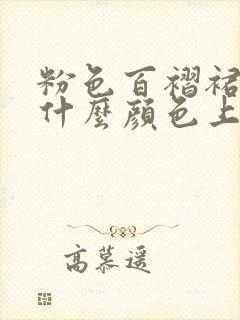 粉色百褶裙
什麼顏色上
高慕遥